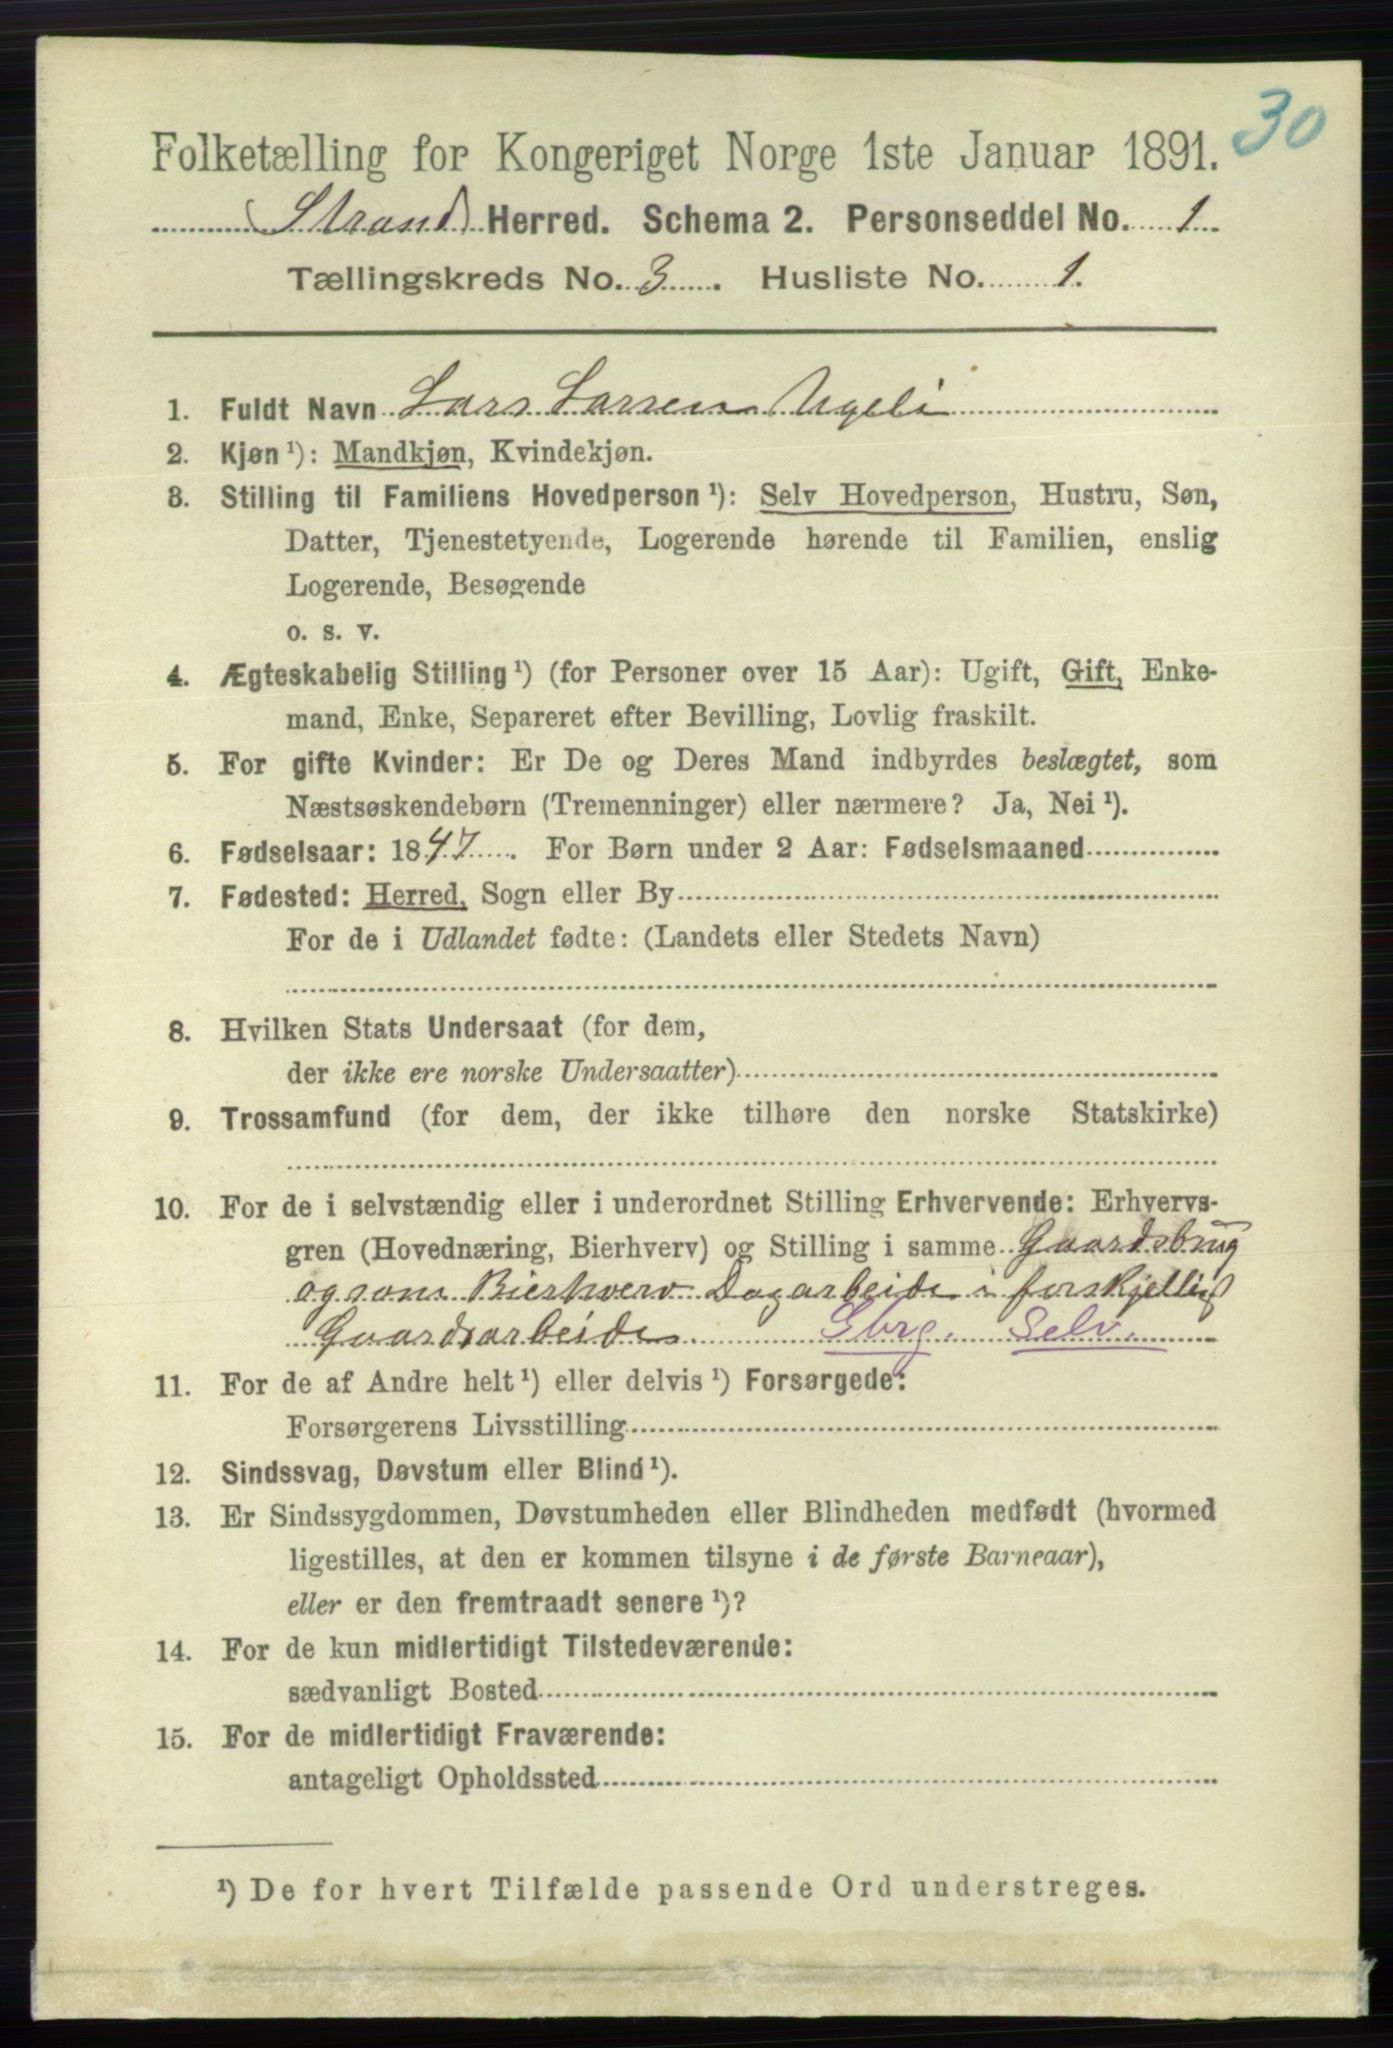 30
Folketælling for Kongeriget Norge 1ste Januar 1891.
Strand Herred. Schema 2. Personseddel No. 1
Tællingskreds No. 3. Husliste No. 1.
1. Fuldt Navn Lars Larsen
2. Kjøn ¹): Mandkjøn, Kvindekjøn.
3. Stilling til Familiens Hovedperson ¹): Selv Hovedperson, Hustru, Søn,
Datter, Tjenestetyende, Logerende hørende til Familien, enslig
Logerende, Besøgende
o. s. v.
4. Ægteskabelig Stilling ¹) (for Personer over 15 Aar): Ugift, Gift, Enke-
mand, Enke, Separeret efter Bevilling, Lovlig fraskilt.
5. For gifte Kvinder: Er De og Deres Mand indbyrdes beslægtet, som
Næstsøskendebørn (Tremenninger) eller nærmere? Ja, Nei ¹).
6. Fødselsaar: 1847. For Børn under 2 Aar: Fødselsmaaned
7. Fødested: Herred, Sogn eller By
For de i Udlandet fødte: (Landets eller Stedets Navn)
8. Hvilken Stats Undersaat (for dem,
der ikke ere norske Undersaatter)
9. Trossamfund (for dem, der ikke tilhøre den norske Statskirke)
10. For de i selvstændig eller i underordnet Stilling Erhvervende: Erhvervs-
gren (Hovednæring, Bierhverv) og Stilling i samme Gaardsbrug
og som Bierhverv Dagarbeide i forskjellig
Gaardsarbeide Gbrg. Selv.
11. For de af Andre helt ¹) eller delvis ¹) Forsørgede:
Forsørgerens Livsstilling
12. Sindssvag, Døvstum eller Blind ¹).
13. Er Sindssygdommen, Døvstumheden eller Blindheden medfødt (hvormed
ligestilles, at den er kommen tilsyne i de første Barneaar),
eller er den fremtraadt senere ¹)?
14. For de kun midlertidigt Tilstedeværende:
sædvanligt Bosted
15. For de midlertidigt Fraværende:
antageligt Opholdssted
¹) De for hvert Tilfælde passende Ord understreges.